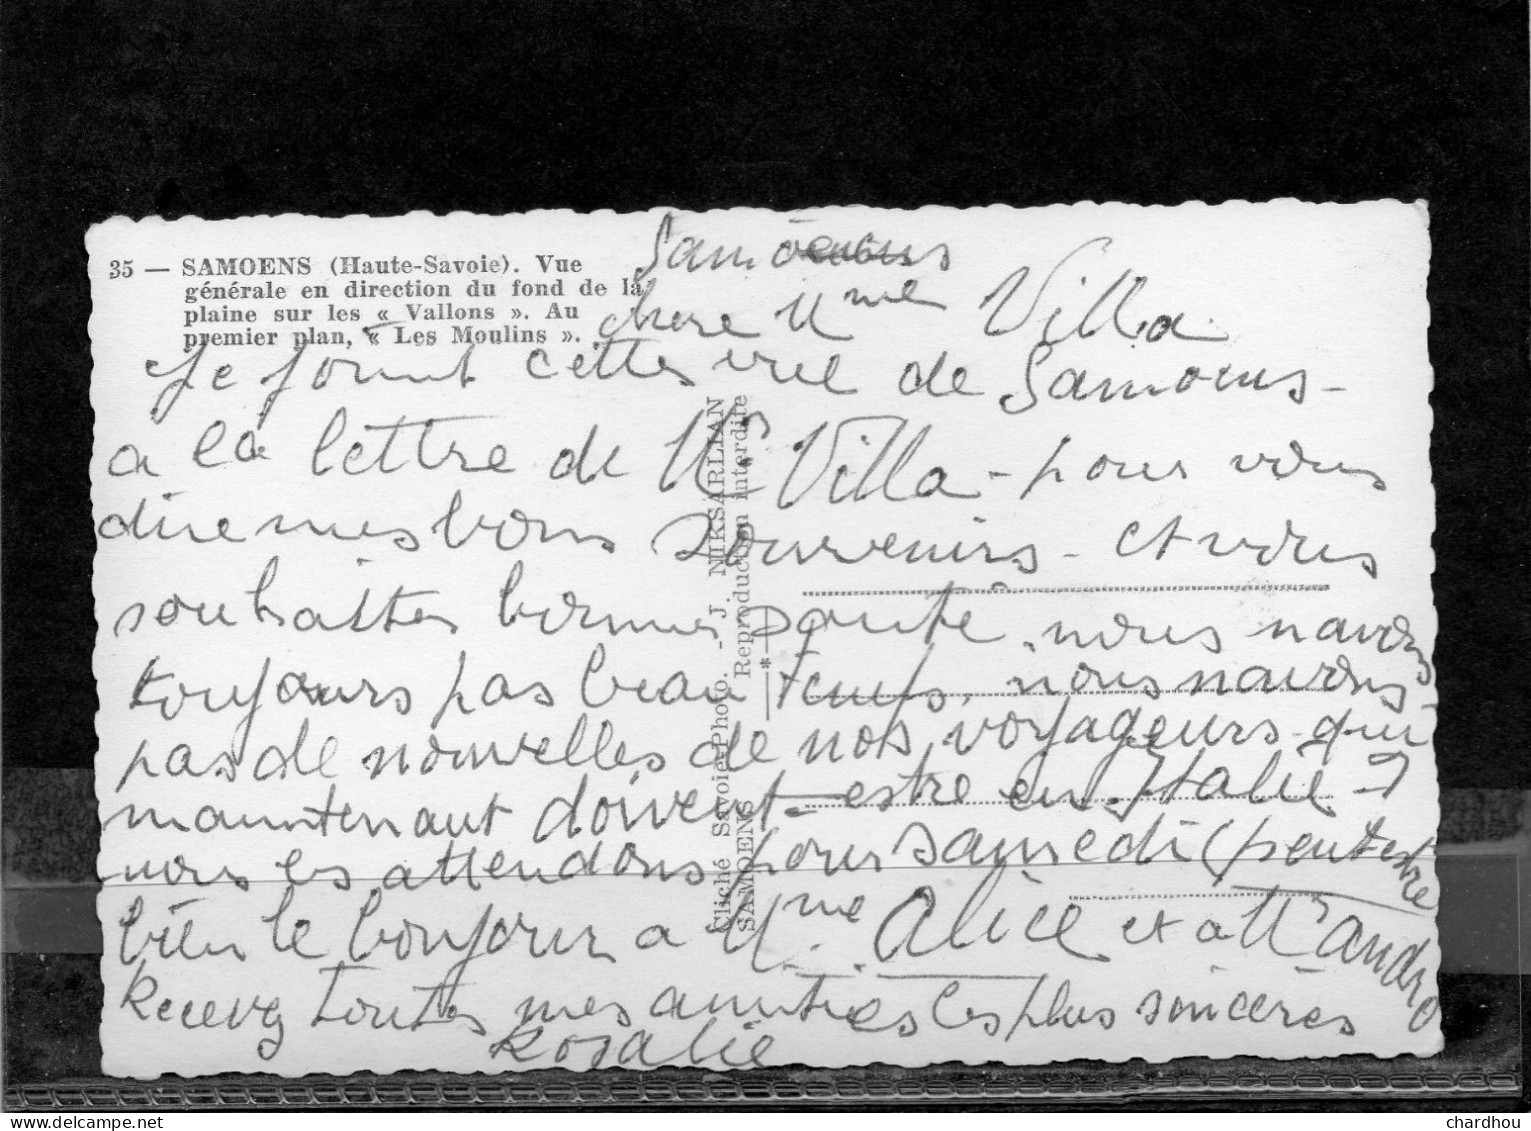 35 — SAMOENS (Haute-Savoie). Vue
générale en direction du fond de la
plaine sur les « Vallons ». Au
premier plan, « Les Moulins ».
Samoens
chere Mme Villa
Je joint cettes vue de Samoens -
a la lettre de Mr Villa - pour vous
dire mes bons souvenirs - et vous
souhaittes bonnes santé. nous navons
toujours pas beau temps. nous navons
pas de nouvelles de nos voyageurs qui
maintenant doivent - estre en Italie - ?
nous les attendons pour samedi (peut estre
bien le bonjour a Mme Alice et a Mr andro
Recevez toutes mes amitiés les plus sincères
Rosalie
Cliché Savoie-Photo. - J. NIKSARLIAN
SAMOENS * Reproduction interdite
chardhou